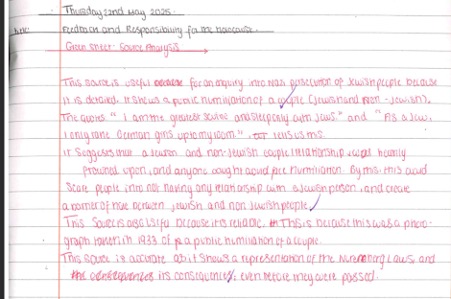 Thursday 22nd May 2025
Feedback and Responsibility for the Holocaust.
Green sheet: Source Analysis
This source is useful because for an enquiry into Nazi persecution of Jewish people because
it is detailed. It shows a public humiliation of a couple (Jewish and non-Jewish).
The quotes "I am the greatest swine and sleep only with Jews." and "As a Jew,
I only take German girls up to my room." tells us this
It suggests that a Jewish and non-Jewish couple relationship was heavily
frowned upon, and anyone caught would face humiliation. By this, this would
scare people into not having any relationship with a Jewish person, and create
a barrier of hate between Jewish and non Jewish people.
This source is also useful because it is reliable. This is because this was a photo-
graph taken in 1933 of a public humiliation of a couple.
This source is accurate as it shows a representation of the Nuremberg Laws, and
the consequences its consequences, even before they were passed.